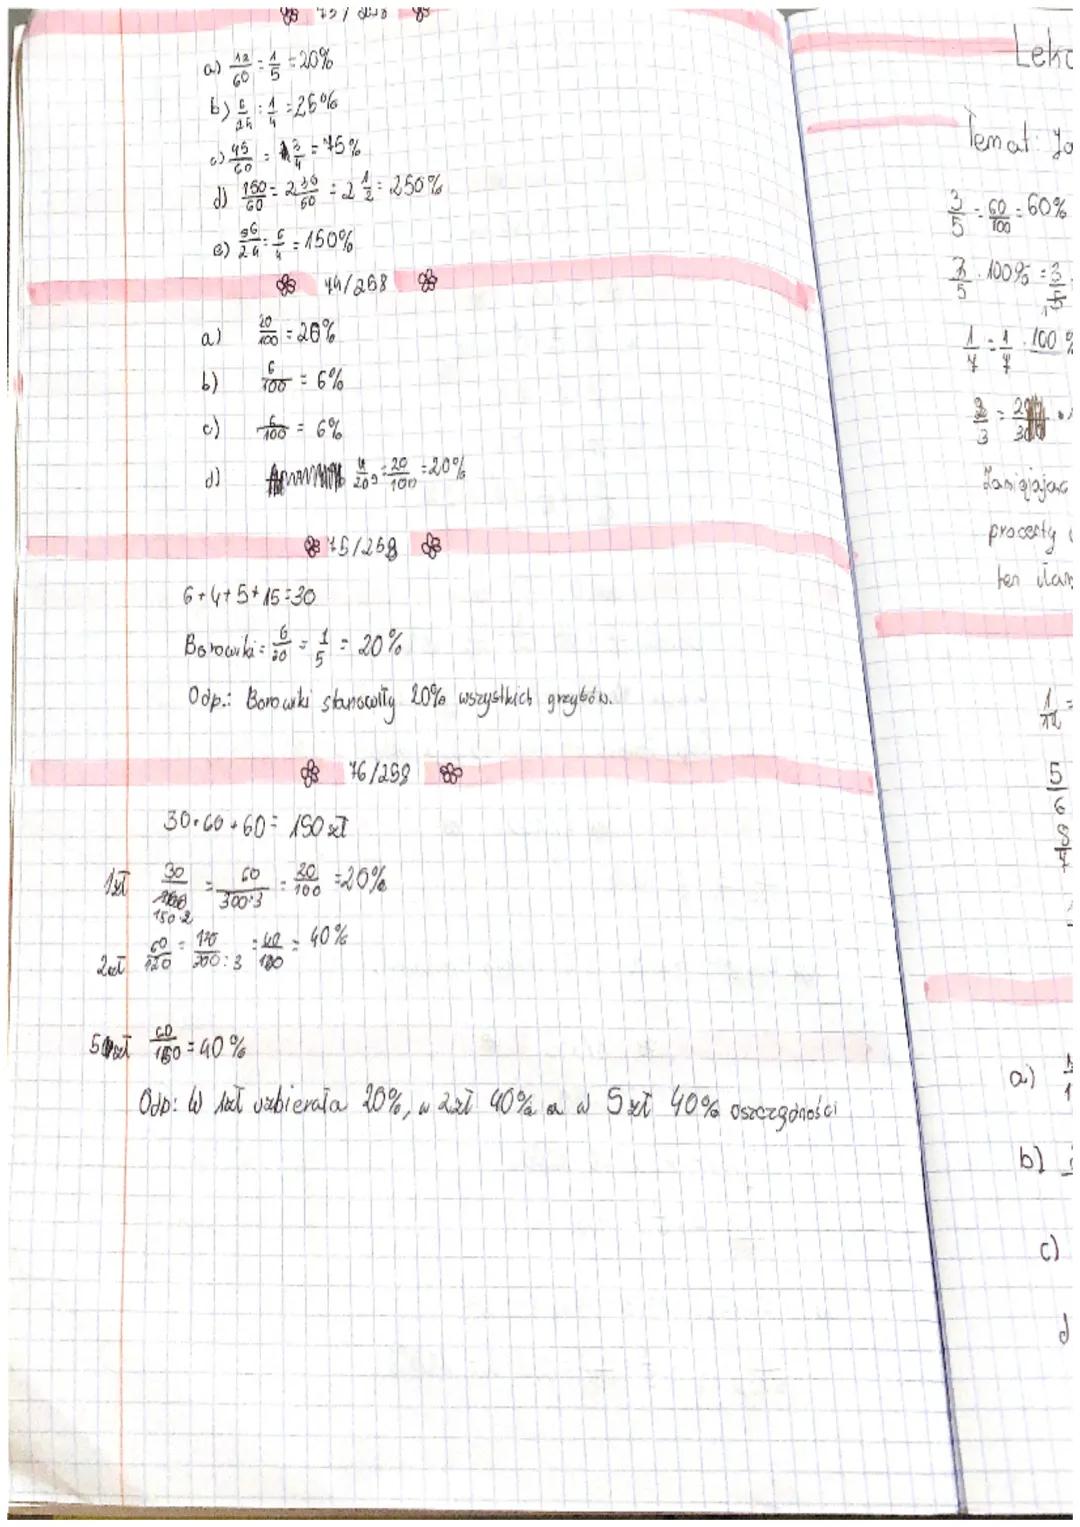 73/258
a) 12/60 = 1/5 = 20%
b) 6/24 = 1/4 = 25%
c) 45/60 = 3/4 = 75%
d) 150/60 = 2 30/60 = 2 1/2 = 250%
e) 36/24 = 6/4 = 150%
74/258
a) 20/100 = 20%
b) 6/100 = 6%
c) 6/100 = 6%
d) 4/20 = 20/100 = 20%
75/258
6+4+5+15=30
Borowiki = 6/30 = 1/5 = 20%
Odp.: Borowiki stanowiły 20% wszystkich grzybów.
76/258
30+60+60= 150 zł
1zł 30/150·2 = 60/300:3 = 20/100 = 20%
2zł 60/150 = 120/300:3 = 40/100 = 40%
5 zł 60/150 = 40%
Odp: W 1zł uzbierała 20%, w 2zł 40% a w 5 zł 40% oszczędności
Lekc
Temat: Ja
3/5 = 60/100 = 60%
3/5 · 100% = 3/5
1/7 = 1/7 · 100%
2/3 = 2
Zamieniając
procenty
ten
1/12 =
5/6
8/7
a)
b)
c)
d